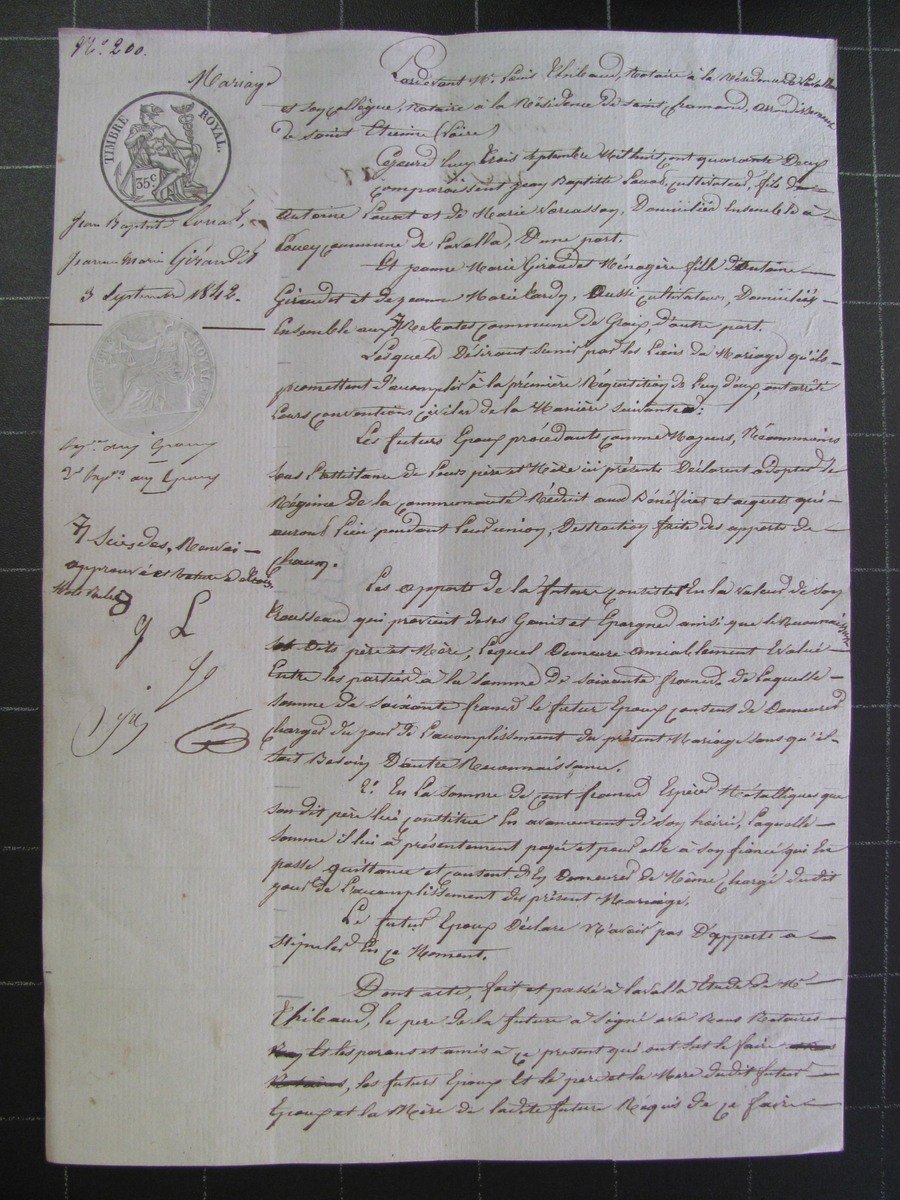 N° 200.
Mariage
TIMBRE ROYAL.
35 c
Jean Baptiste
Jeanne Marie Giraudet
3 Septembre 1842.
Expn aux Epoux
2e Expn aux Epoux
7 Scies des, Renvoi
approuvé
Pardevant Me Louis Thibaud, Notaire à la Résidence de Lavalla
et son collègue, Notaire à la Résidence de Saint Chamond, arrondissement
de Saint Etienne (Loire)
Cejourd'huy trois septembre Mil huit cent quarante Deux
comparaissent Jean Baptiste cultivateur, fils de
Antoine et de Marie Domiciliés Ensemble à
commune de Lavalla, D'une part.
Et jeanne Marie Giraudet Ménagère fille d'Antoine
Giraudet et de jeanne Marie Tardy, Aussi cultivateurs, Domiciliés
Ensemble aux 7 commune de Graix, d'autre part.
Lesquels Désirant s'unir par les Liens du Mariage qu'ils
promettent d'accomplir à la première Réquisition de L'un d'eux, ont arrêté
Leurs conventions civiles de la Manière suivante:
Les futurs Epoux procédants comme Majeurs, Néanmoins
sous L'assistance de Leurs père et Mère ici présents Déclarent adopter le
Régime de la communauté Réduit aux Bénéfices et acquets qui
auront Lieu pendant Leur union, Distraction faite des apports de
chacun.
Les apports de la future consistent En la valeur de son
trousseau qui provient de ses Gains et Epargnes ainsi que le Reconnaissent
ses Dits père et Mère, Lequel Demeure amiablement Evalué
Entre les parties à la somme de soixante francs. de Laquelle
somme de soixante francs le futur Epoux consent de Demeurer
chargé du jour de L'accomplissement du présent Mariage sans qu'il
soit Besoin D'autre Reconnaissance.
2° En La somme de cent francs Espèces Métalliques que
son dit père lui constitue En avancement de son hoirie, Laquelle
somme il lui a présentement payée et pour elle à son fiancé qui En
passe quittance et consent d'En Demeurer de Même chargé dudit
jour de L'accomplissement du présent Mariage.
Le futur Epoux Déclare N'avoir pas D'apports a
stipuler En ce Moment.
Dont acte, fait et passé à Lavalla Etude de Me
Thibaud, le pere de la future a signé avec Nous Notaires
Et les parens et amis à ce present qui ont sut le faire
les futurs Epoux Et le pere et la Mere dudit futur
Epoux et la Mère de ladite future Requis de ce faire